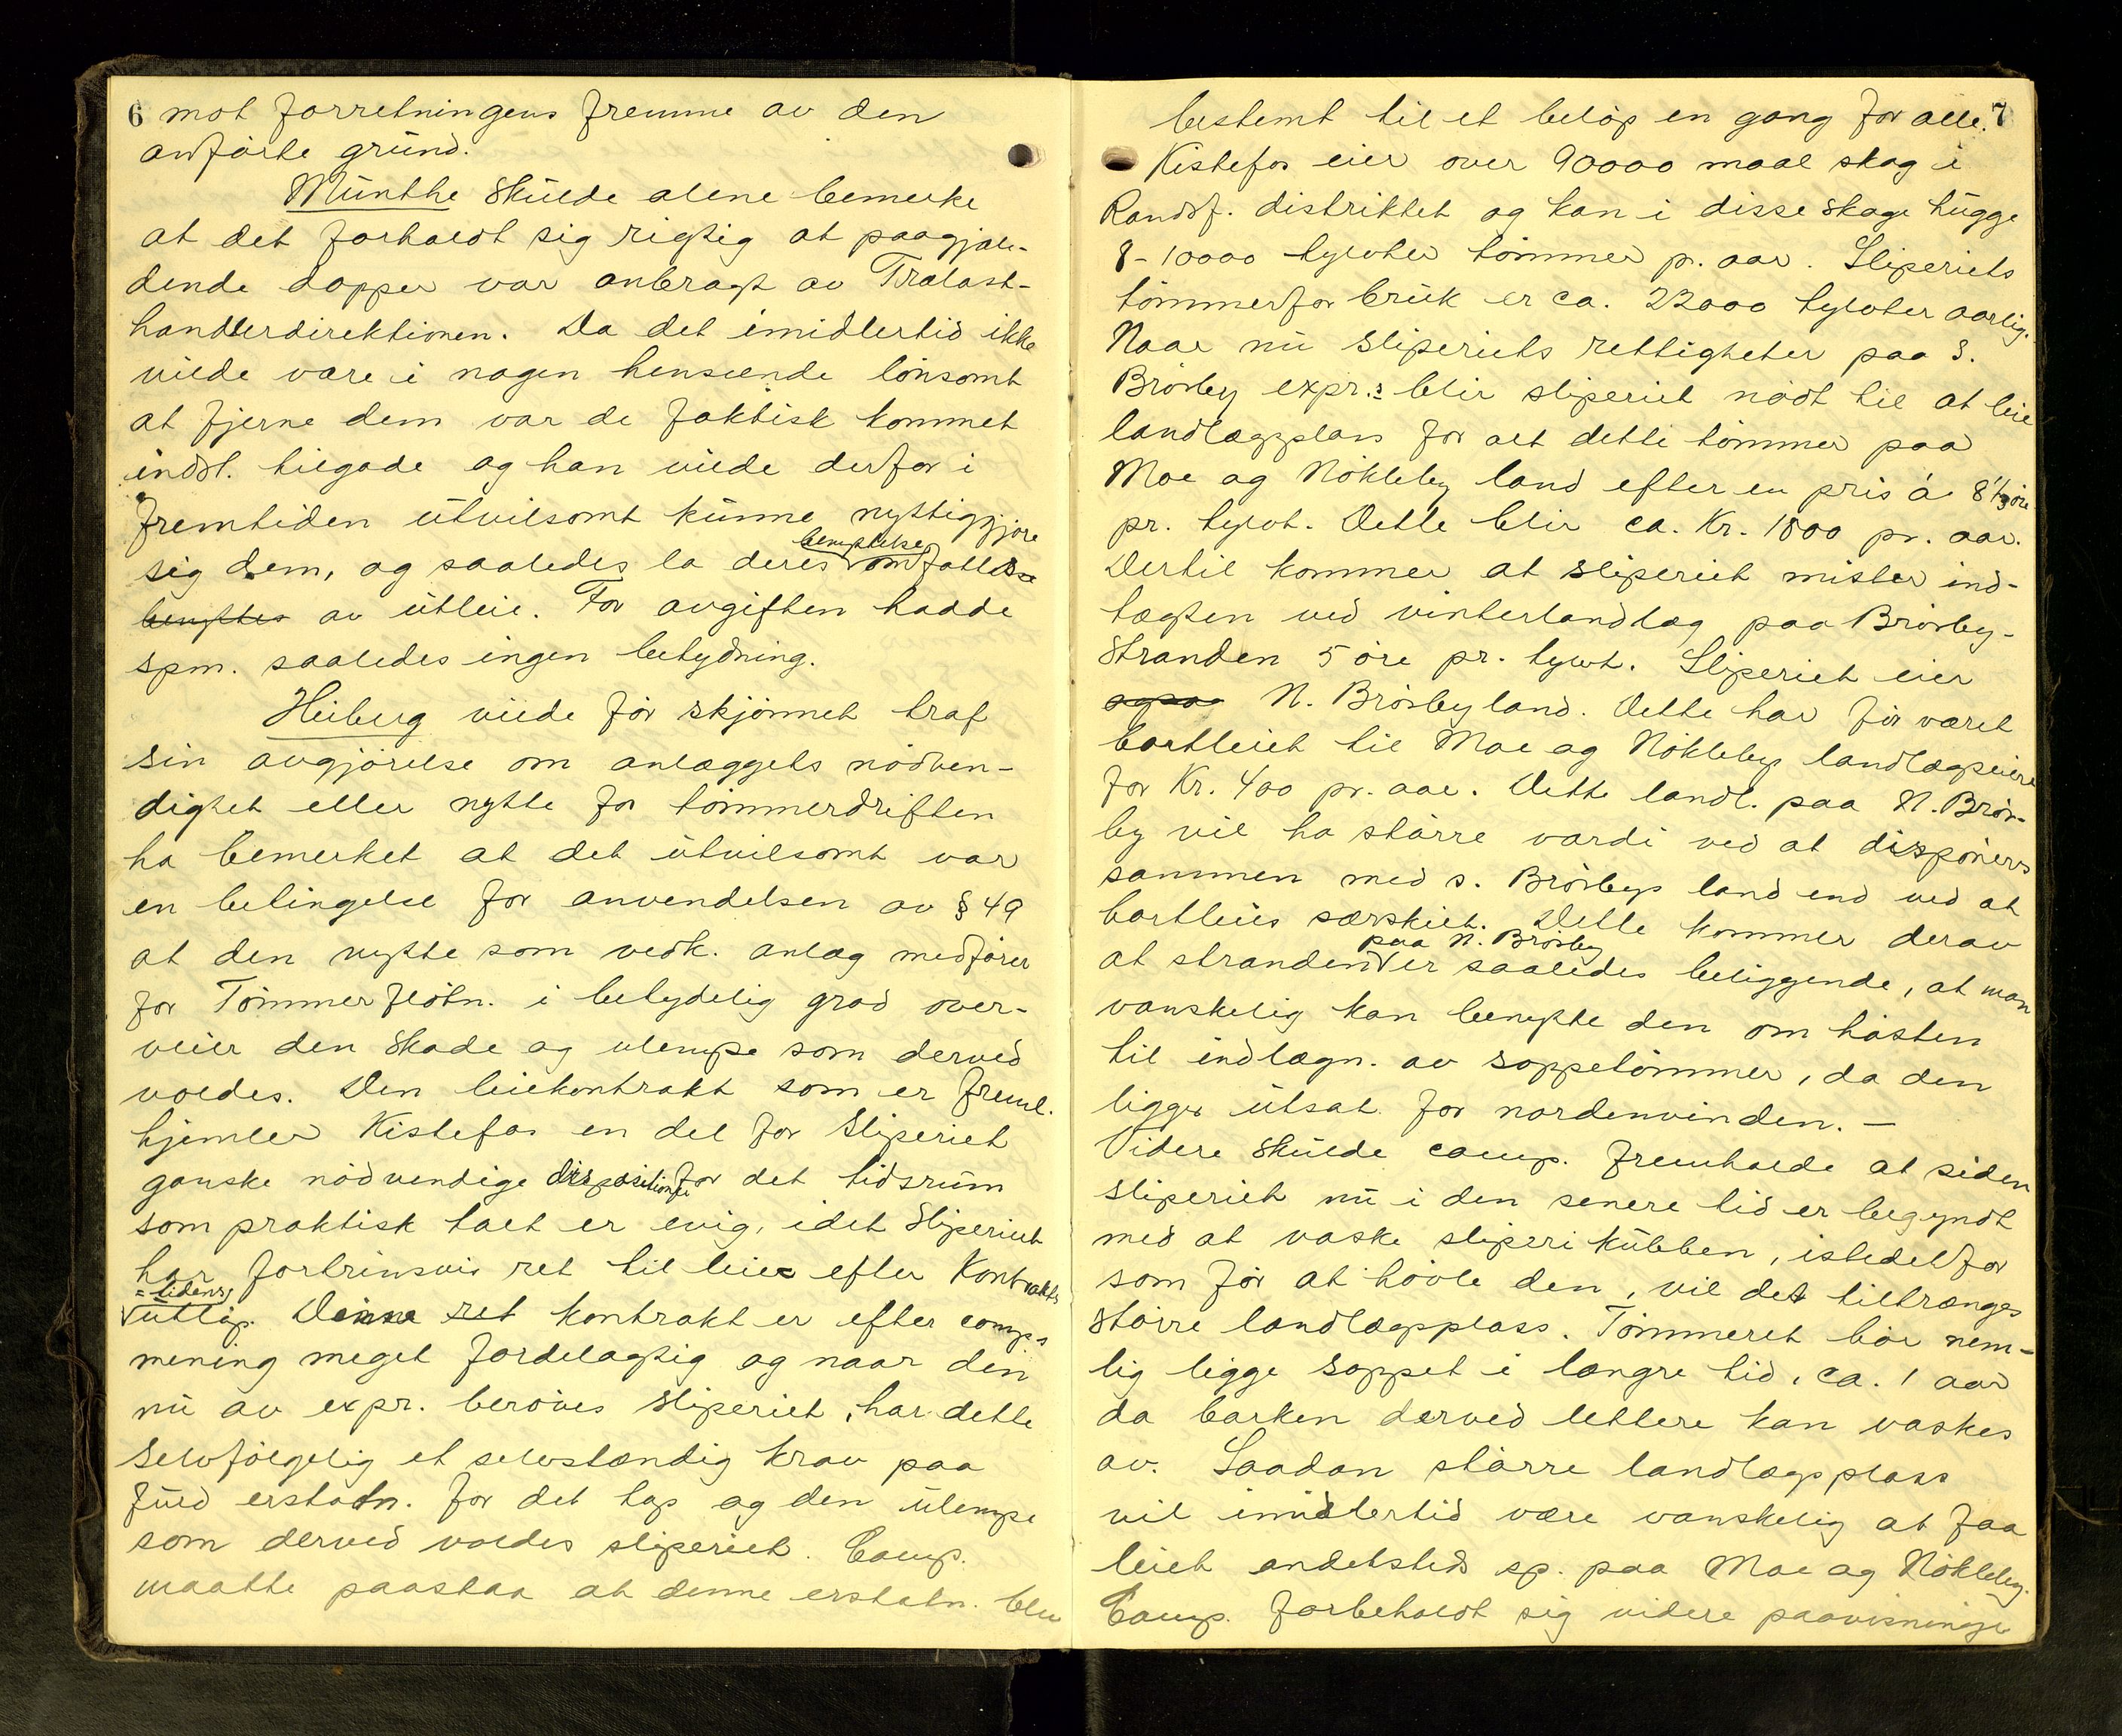 6 mot forretningens fremme av den
anførte grund.
Münthe skulde alene bemerke
at det forholdt sig rigtig at paagjæl-
dende dopper var anbragt av Trælast-
handlerdirektionen. Da det imidlertid ikke
vilde være i nogen henseende lønsomt
at fjerne dem var de faktisk kommet
indst. tilgode og han vilde derfor i
fremtiden utvilsomt kunne nyttiggjøre
sig dem, og saaledes la deres benyttelse omfattes
benyttes av utleie. For avgiften hadde
spm. saaledes ingen betydning.
Heiberg vilde før skjønnet traf
sin avgjørelse om anlæggets nødven-
dighet eller nytte for tømmerdriften
ha bemerket at det utvilsomt var
en betingelse for anvendelsen av § 49
at den nytte som vedk. anlæg medfører
for Tømmerfløtn. i betydelig grad over-
veier den skade og ulempe som derved
voldes. Den leiekontrakt som er freml.
hjemler Kistefos en del for Sliperiet
ganske nødvendige dispositioner for det tidsrum
som praktisk talt er evig, idet Sliperiet
har fortrinsvis ret til leie efter Kontrakts
=tidens
utløp. Denne ret kontrakt er efter comp.s
mening meget fordelagtig og naar den
nu av expr. berøves sliperiet, har dette
selvfølgelig et selvstændig krav paa
fuld erstatn. for det tap og den ulempe
som derved voldes sliperiet. Comp.
maatte paastaa at denne erstatn. blev
bestemt til et beløp en gang for alle. 7
Kistefos eier over 90000 maal skog i
Randsf. distriktet og kan i disse skoge hugge
8-10000 tylvter tømmer p. aar. Sliperiets
tømmerforbruk er ca. 22000 tylvter aarlig.
Naar nu sliperiets rettigheter paa S.
Brørby expr.s blir sliperiet nødt til at leie
landlægsplass for alt dette tømmer paa
Moe og Nøkleby land efter en pris á 8 1/3 øre
pr. tylvt. Dette blir ca. Kr. 1800 pr. aar.
Dertil kommer at sliperiet mister ind-
tægten ved vinterlandlæg paa Brørby-
stranden 5 øre pr. tylvt. Sliperiet eier
ogsaa N. Brørby land. Dette har før været
bortleiet til Moe og Nøkleby landlægseiere
for Kr. 400 pr. aar. Dette landl. paa N. Brør-
by vil ha større værdi ved at disponeres
sammen med s. Brørbys land end ved at
bortleies særskilt. Dette kommer derav
at stranden paa N. Brørby er saaledes beliggende, at man
vanskelig kan benytte den om høsten
til indlægn. av soppetømmer, da den
ligger utsat for nordenvinden. —
Videre skulde comp. fremholde at siden
sliperiet nu i den senere tid er begyndt
med at vaske sliperikubben, istedetfor
som før at høvle den, vil det tiltrænges
større landlægsplass. Tømmeret bør nem-
lig ligge soppet i længre tid, ca. 1 aar
da barken derved lettere kan vaskes
av. Saadan større landlægsplass
vil imidlertid være vanskelig at faa
leiet andetsteds sp. paa Moe og Nøkleby.
Comp. forbeholdt sig videre paavisninger